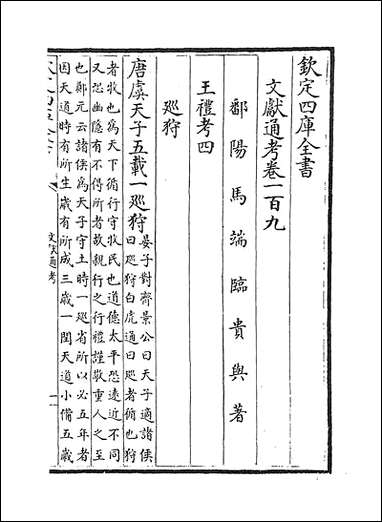 欽定四庫全書
文獻通考卷一百九
鄱陽馬端臨貴與著
王禮考四
廵狩
唐虞天子五載一廵狩晏子對齊景公曰天子適諸侯
曰廵狩白虎通曰廵者循也狩
者牧也為天下循行守牧民也道德太平恐遠近不同
又恐幽隠有不得所者故親行之行禮謹敬重人之至
也鄭元云諸侯為天子守土時一廵省所以必五年者
因天道時有所生歲有所成三歲一閏天道小備五歲
文獻通考
一